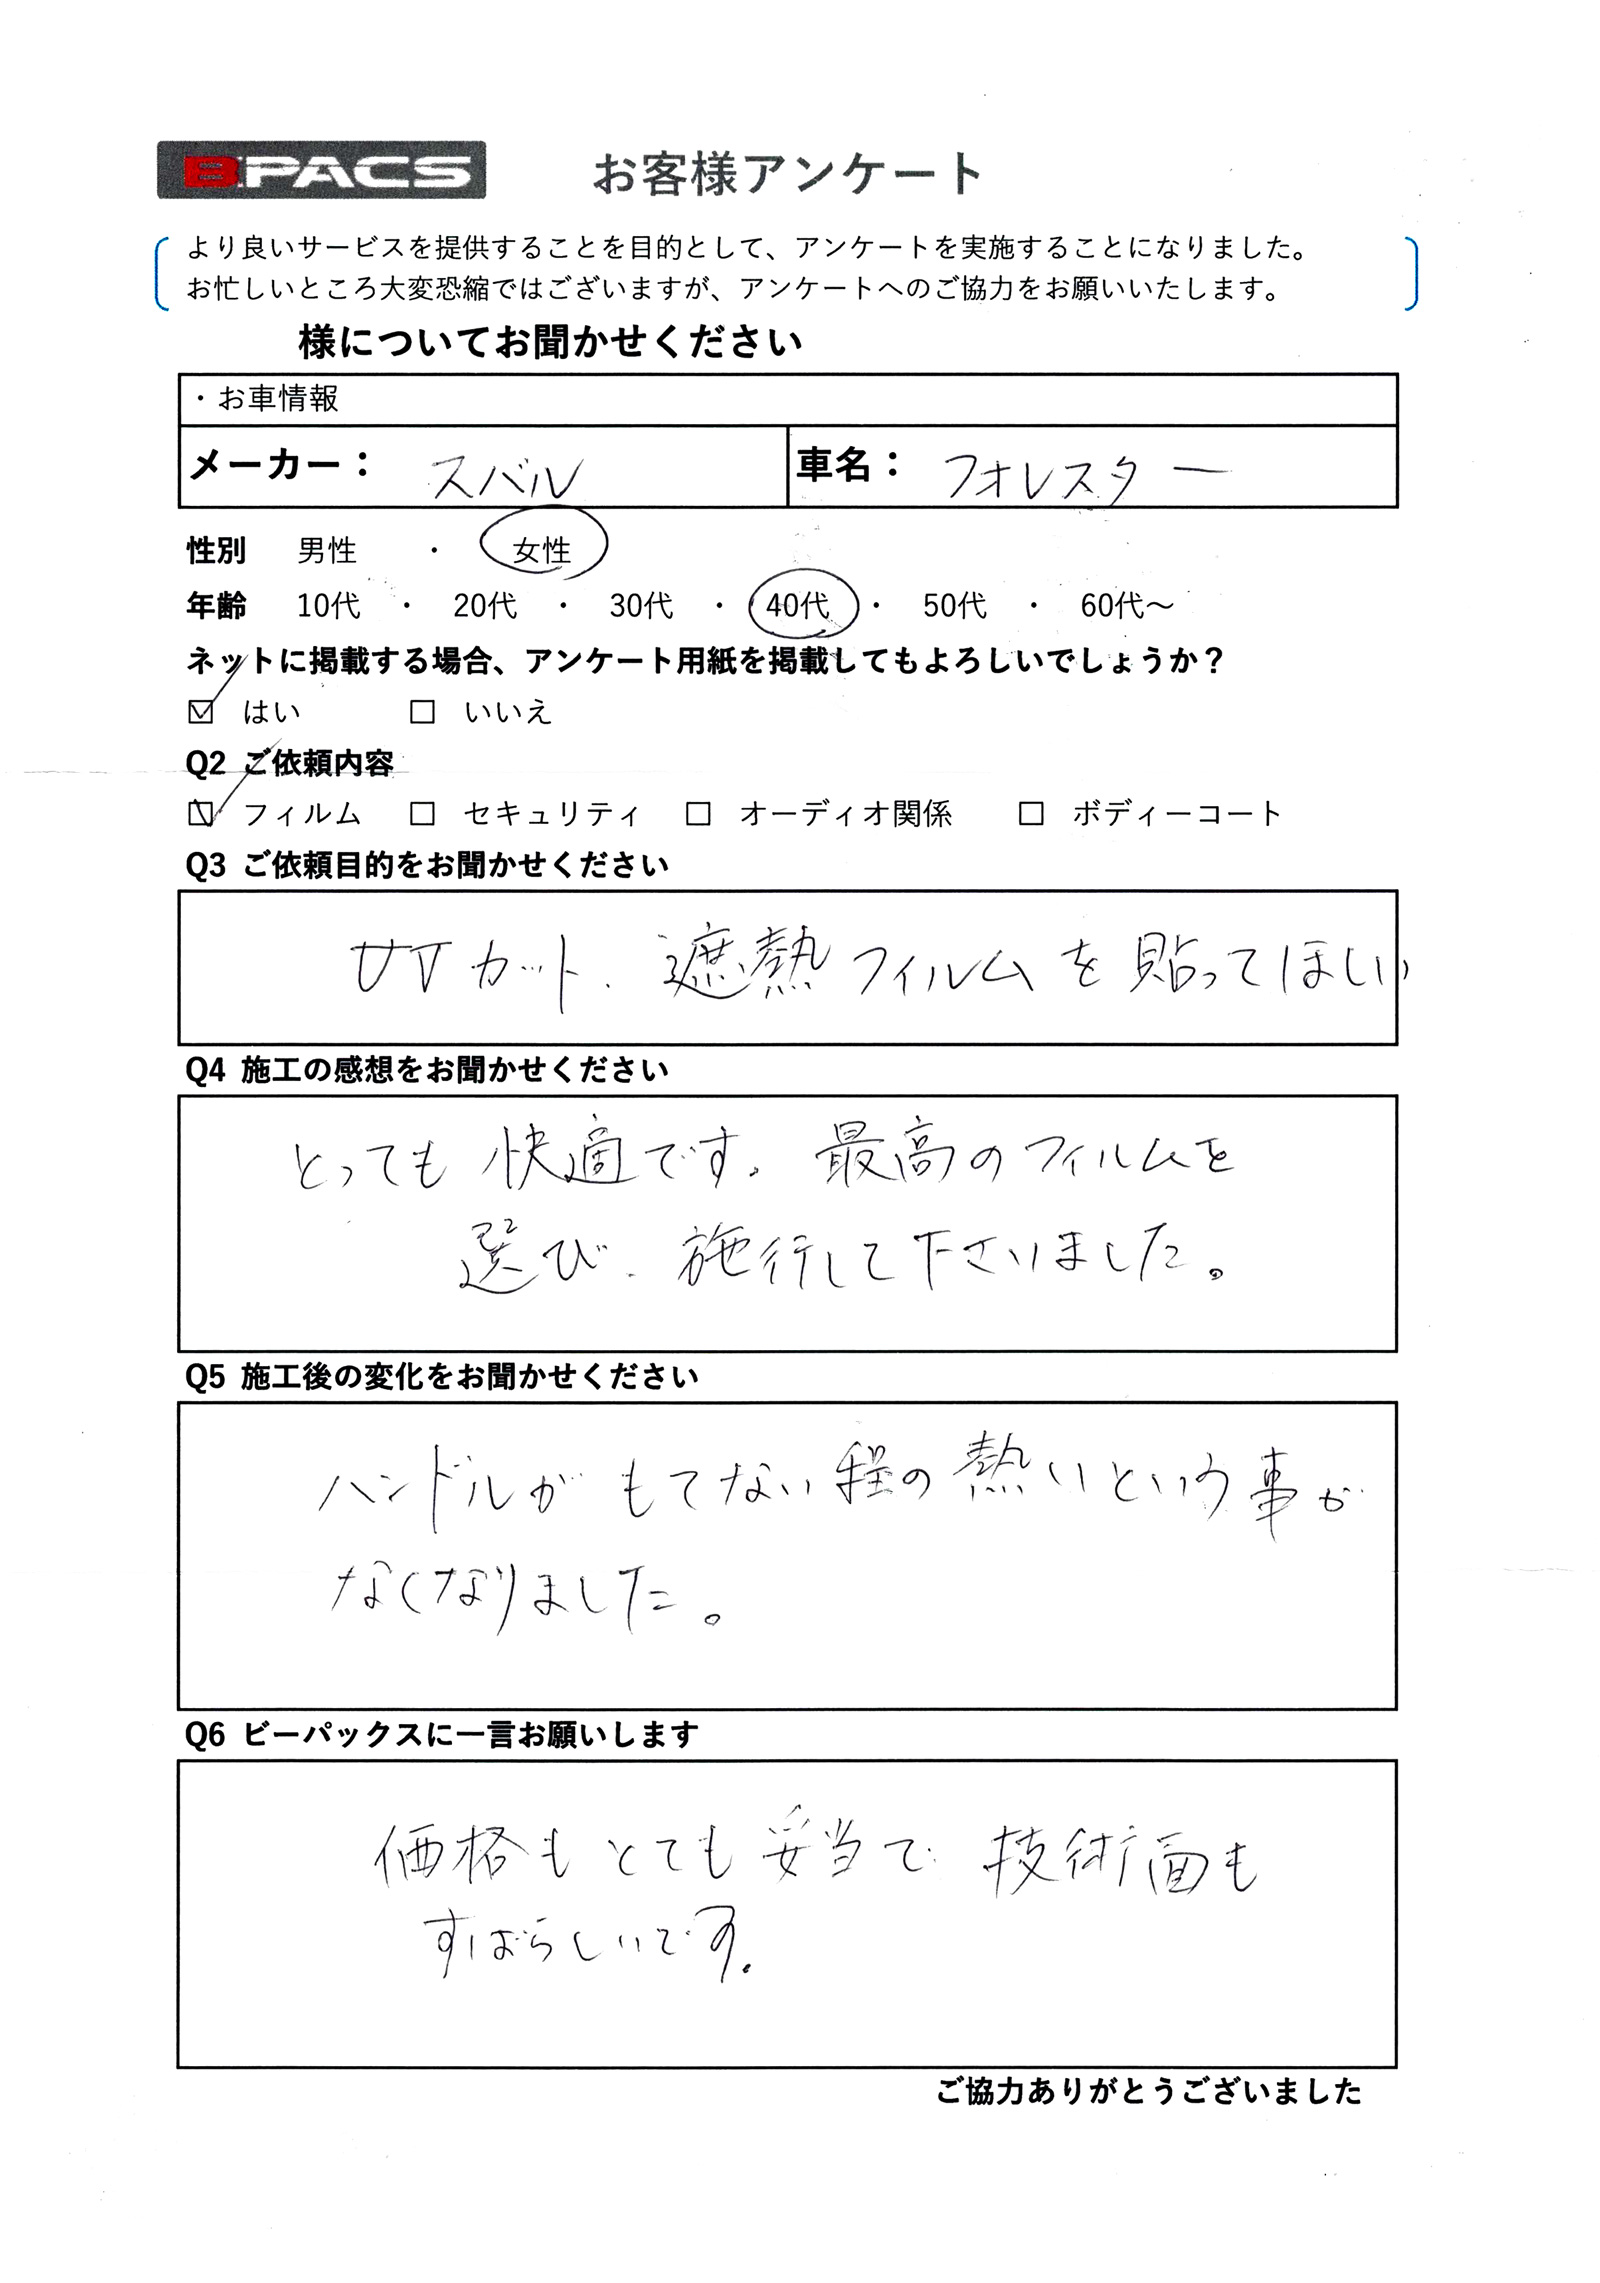 BPACS お客様アンケート
より良いサービスを提供することを目的として、アンケートを実施することになりました。
お忙しいところ大変恐縮ではございますが、アンケートへのご協力をお願いいたします。
様についてお聞かせください
・お車情報
メーカー： スバル 車名： フォレスター
性別 男性 ・ 女性
年齢 10代 ・ 20代 ・ 30代 ・ 40代 ・ 50代 ・ 60代～
ネットに掲載する場合、アンケート用紙を掲載してもよろしいでしょうか？
☑ はい □ いいえ
Q2 ご依頼内容
☑ フィルム □ セキュリティ □ オーディオ関係 □ ボディーコート
Q3 ご依頼目的をお聞かせください
カット、遮熱フィルムを貼ってほしい
Q4 施工の感想をお聞かせください
とっても快適です。最高のフィルムを
選び、施行して下さいました。
Q5 施工後の変化をお聞かせください
ハンドルがもてない程の熱いという事が
なくなりました。
Q6 ビーパックスに一言お願いします
価格もとても妥当で技術面も
すばらしいです。
ご協力ありがとうございました